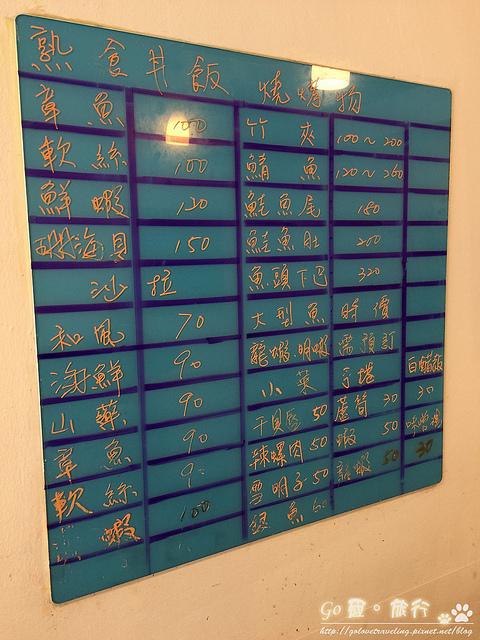 熟食丼飯 燒烤物
章魚 100 竹夾 100~200
軟絲 100 鯖魚 120~260
鮮蝦 120 鮭魚尾 180
珊瑚海貝 150 鮭魚肚 200
沙拉 魚頭下巴 320
和風 70 大型魚 時價
海鮮 90 龍蝦.明蝦 需預訂
山藥 90 小菜 手捲 白醋飯
章魚 90 干貝唇 50 蘆筍 30 30
軟絲 90 辣螺肉 50 蝦 50 味噌湯
蝦 100 明子 50 龍蝦 50 30
銀魚 60
Go 靈。旅行
http://golovetraveling.pixnet.net/blog